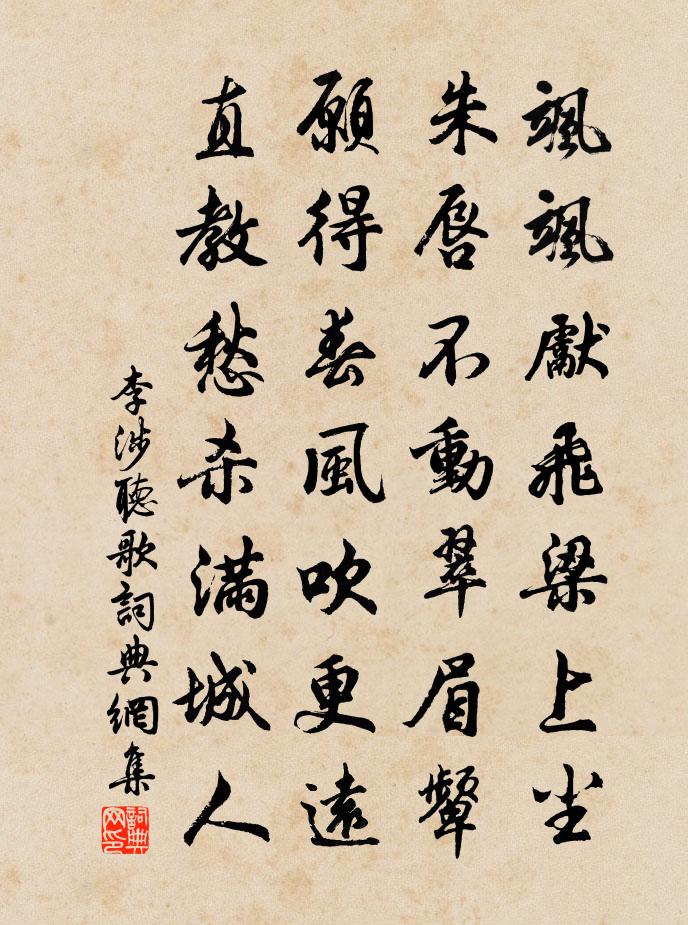 颯颯獻飛梁上尘
朱唇不動翠眉顰
願得春風吹更遠
直教愁杀滿城人
李涉聽歌詞典網集
詞典网印